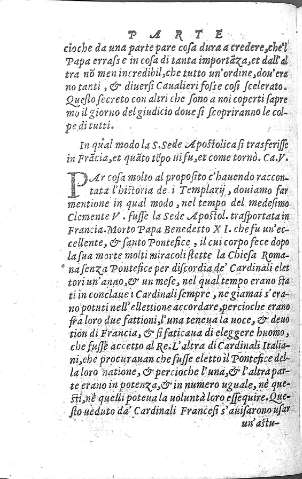 PARTE
cioche da una parte pare cosa dura a credere, che'l
Papa errasse in cosa di tanta importãza, et dall'al
tra nõ men incredibil, che tutto un'ordine, dou'ere
no tanti, & diuersi Caualieri fosse così scelerato.
Questo secreto con altri che sono a noi coperti sapre
mo il giorno del giudicio doue si scopriranno le col
pe di tutti.
In qual modo la S. Sede Apostolica si trasferisse
in Frãcia, et quãto tẽpo ui fu, et come tornò. Ca. V.
PAr cosa molto al proposito c'hauendo raccon
tata l'historia de i Templarij, douiamo far
mentione in qual modo, nel tempo del medesimo
Clemente V. fusse la Sede Apostol. trasportata in
Francia. Morto Papa Benedesto XI. che fu un'ec
cellente, & santo Pontefice, il cui corpo fece dopo
la sua morte molti miracoli stette la Chiesa Roma
na senza Pontefice per discordia de' Cardinali elet
tori un'anno, & un mese, nel qual tempo erano sta
ti in conclaue i Cardinali sempre, ne giamai s'erano
potuti nell'ellettione accordare, percioche erano
fra loro due fattioni, l'una teneua la uoce, & deuo
tion di Francia, & si faticaua di eleggere huomo,
che fusse accetto al Re. L'altra di Cardinali Italia
ni, che procurauan che fusse eletto il Pontefice del
la loro natione, & percioche l'una, & l'altra par
te erano in potenza, & in numero uguale, nè que
sti, nè quelli poteua la uoluntà loro essequire. Que
sto ueduto da' Cardinali Francesi s'auisarono usar
un'astu-